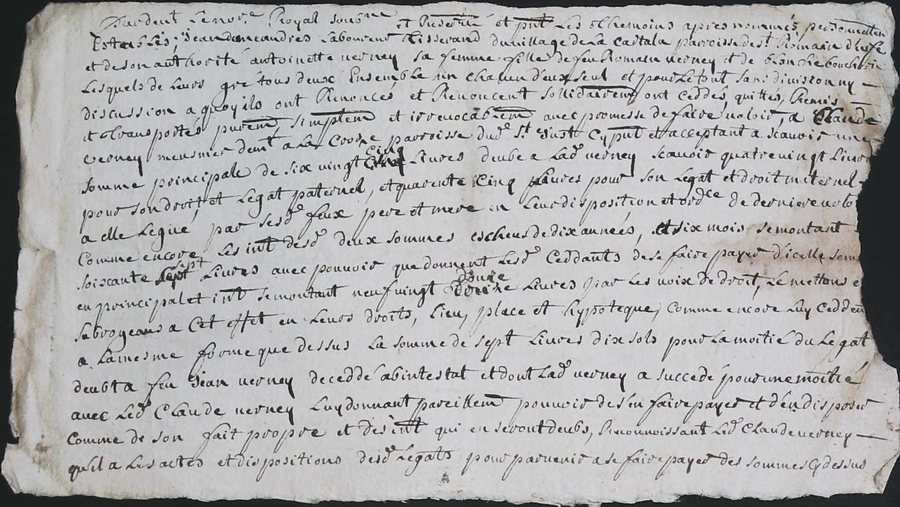 Pardevt Le no.re Royal soub.né et Reservé et pnt Les tthemoins apres nommés, personnellem
Establis, Jean andres Laboureur tisserand du village de la Castala parroisse de st Romain
et de son authorité antoinette verney sa femme fille de feu Romain verney et de
Lesquels de leurs gre tous deux Ensemble un chacun d'eux seul et pour le tout sans division ny
discussion a quoy ils ont Renoncés et Renoncent sollidairem ont Ceddés, quittés, Remis
et transportés purem, simplem et irrevocablem avec promesse de faire valoir, a Claude
verney meusnier demt a La Coste parroisse du.t St just Cy pnt et acceptant a scavoir une
somme principale de six vingt Cinq Livres deube a Lad verney scavoir quatre vingt Livres
pour son droit, et Legat paternel, et quarente Cinq Livres pour son Legat et droit maternel
a elle Legué par sesd feux pere et mere en Leur disposition et ord.ce de derniere volo
Comme encore Les int desd deux sommes escheus de dix années, et six mois se montant
soixante sept Livres avec pouvoir que donnent Lesd Ceddants de se faire payer d'icelle som
en principal et int se montant neuf vingt douze Livres par Les voix de droit, Le mettans e
subrogeans a Cet effet en Leurs droits, Lieu, place et hypoteque, Comme encore Luy Cedden
a La mesme forme que dessus La somme de sept Livres dix sols pour La moitié du Legat
deubt a feu Jean verney deceddé abintestat et dont Lad verney a succedé pour une moitié
avec Led Claude verney Luy donnant pareillem pouvoir de s'en faire payer et d'en disposer
Comme de son fait propre et des int qui en seront deubs, Reconnoissant Led Claude verney
qu'il a Les actes et dispositions desd Legats pour parvenir a se faire payer des sommes Cy dessus